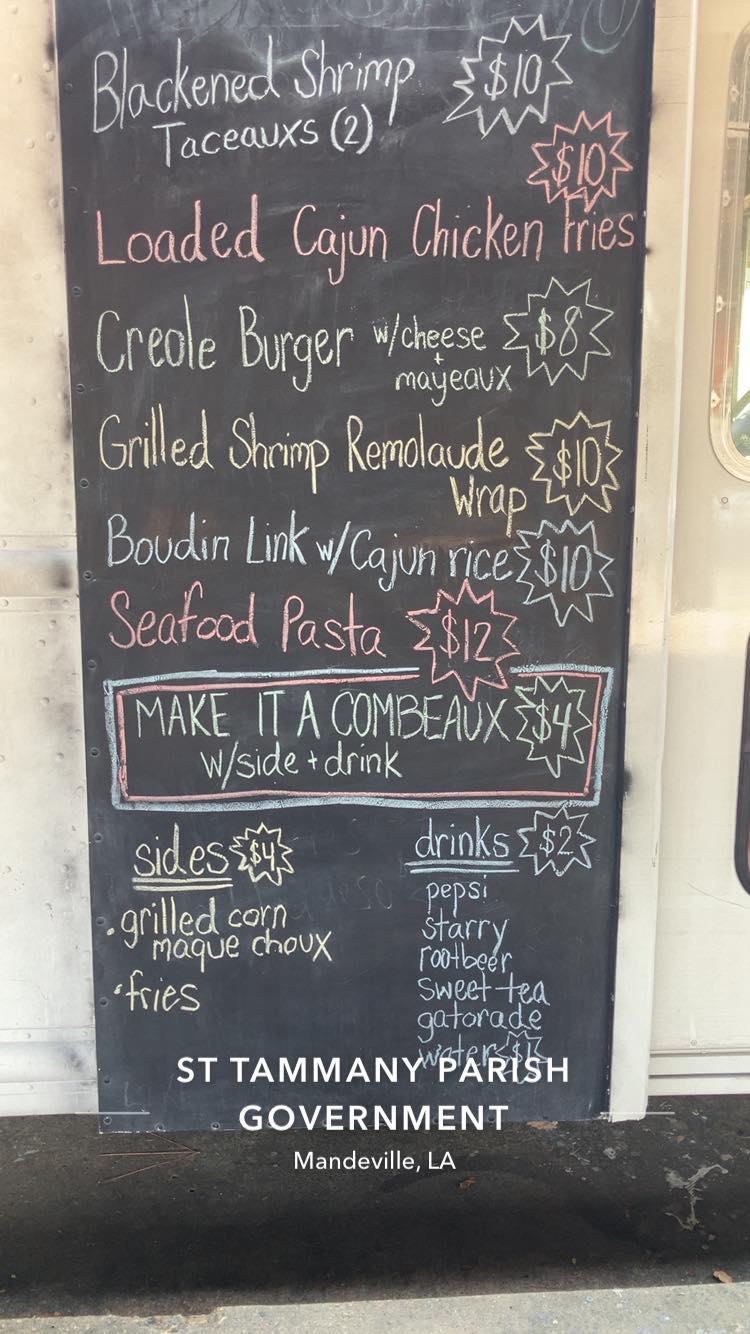 Blackened Shrimp $10
Taceauxs (2)
$10
Loaded Cajun Chicken Fries
Creole Burger w/cheese $8
+
mayeaux
Grilled Shrimp Remolaude $10
Wrap
Boudin Link w/Cajun rice $10
Seafood Pasta $12
MAKE IT A COMBEAUX $4
w/side + drink
sides $4
·grilled corn
maque choux
·fries
drinks $2
pepsi
starry
rootbeer
sweet tea
gatorade
water $1
ST TAMMANY PARISH
GOVERNMENT
Mandeville, LA